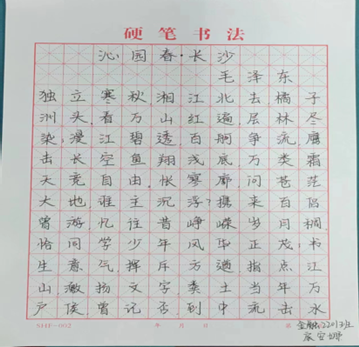 硬笔书法
沁园春·长沙
毛泽东
独立寒秋湘江北去橘子
洲头,看万山红遍层林尽
染;漫江碧透,百舸争流.鹰
击长空鱼翔浅底万类霜
天竞自由.怅寥廓问苍茫
大地谁主沉浮?携来百侣
曾游,忆往昔峥嵘岁月稠.
恰同学少年风华正茂;书
生意气,挥斥方遒指点江
山激扬文字,粪土当年万
户侯曾记否到中流击水
年 月 日